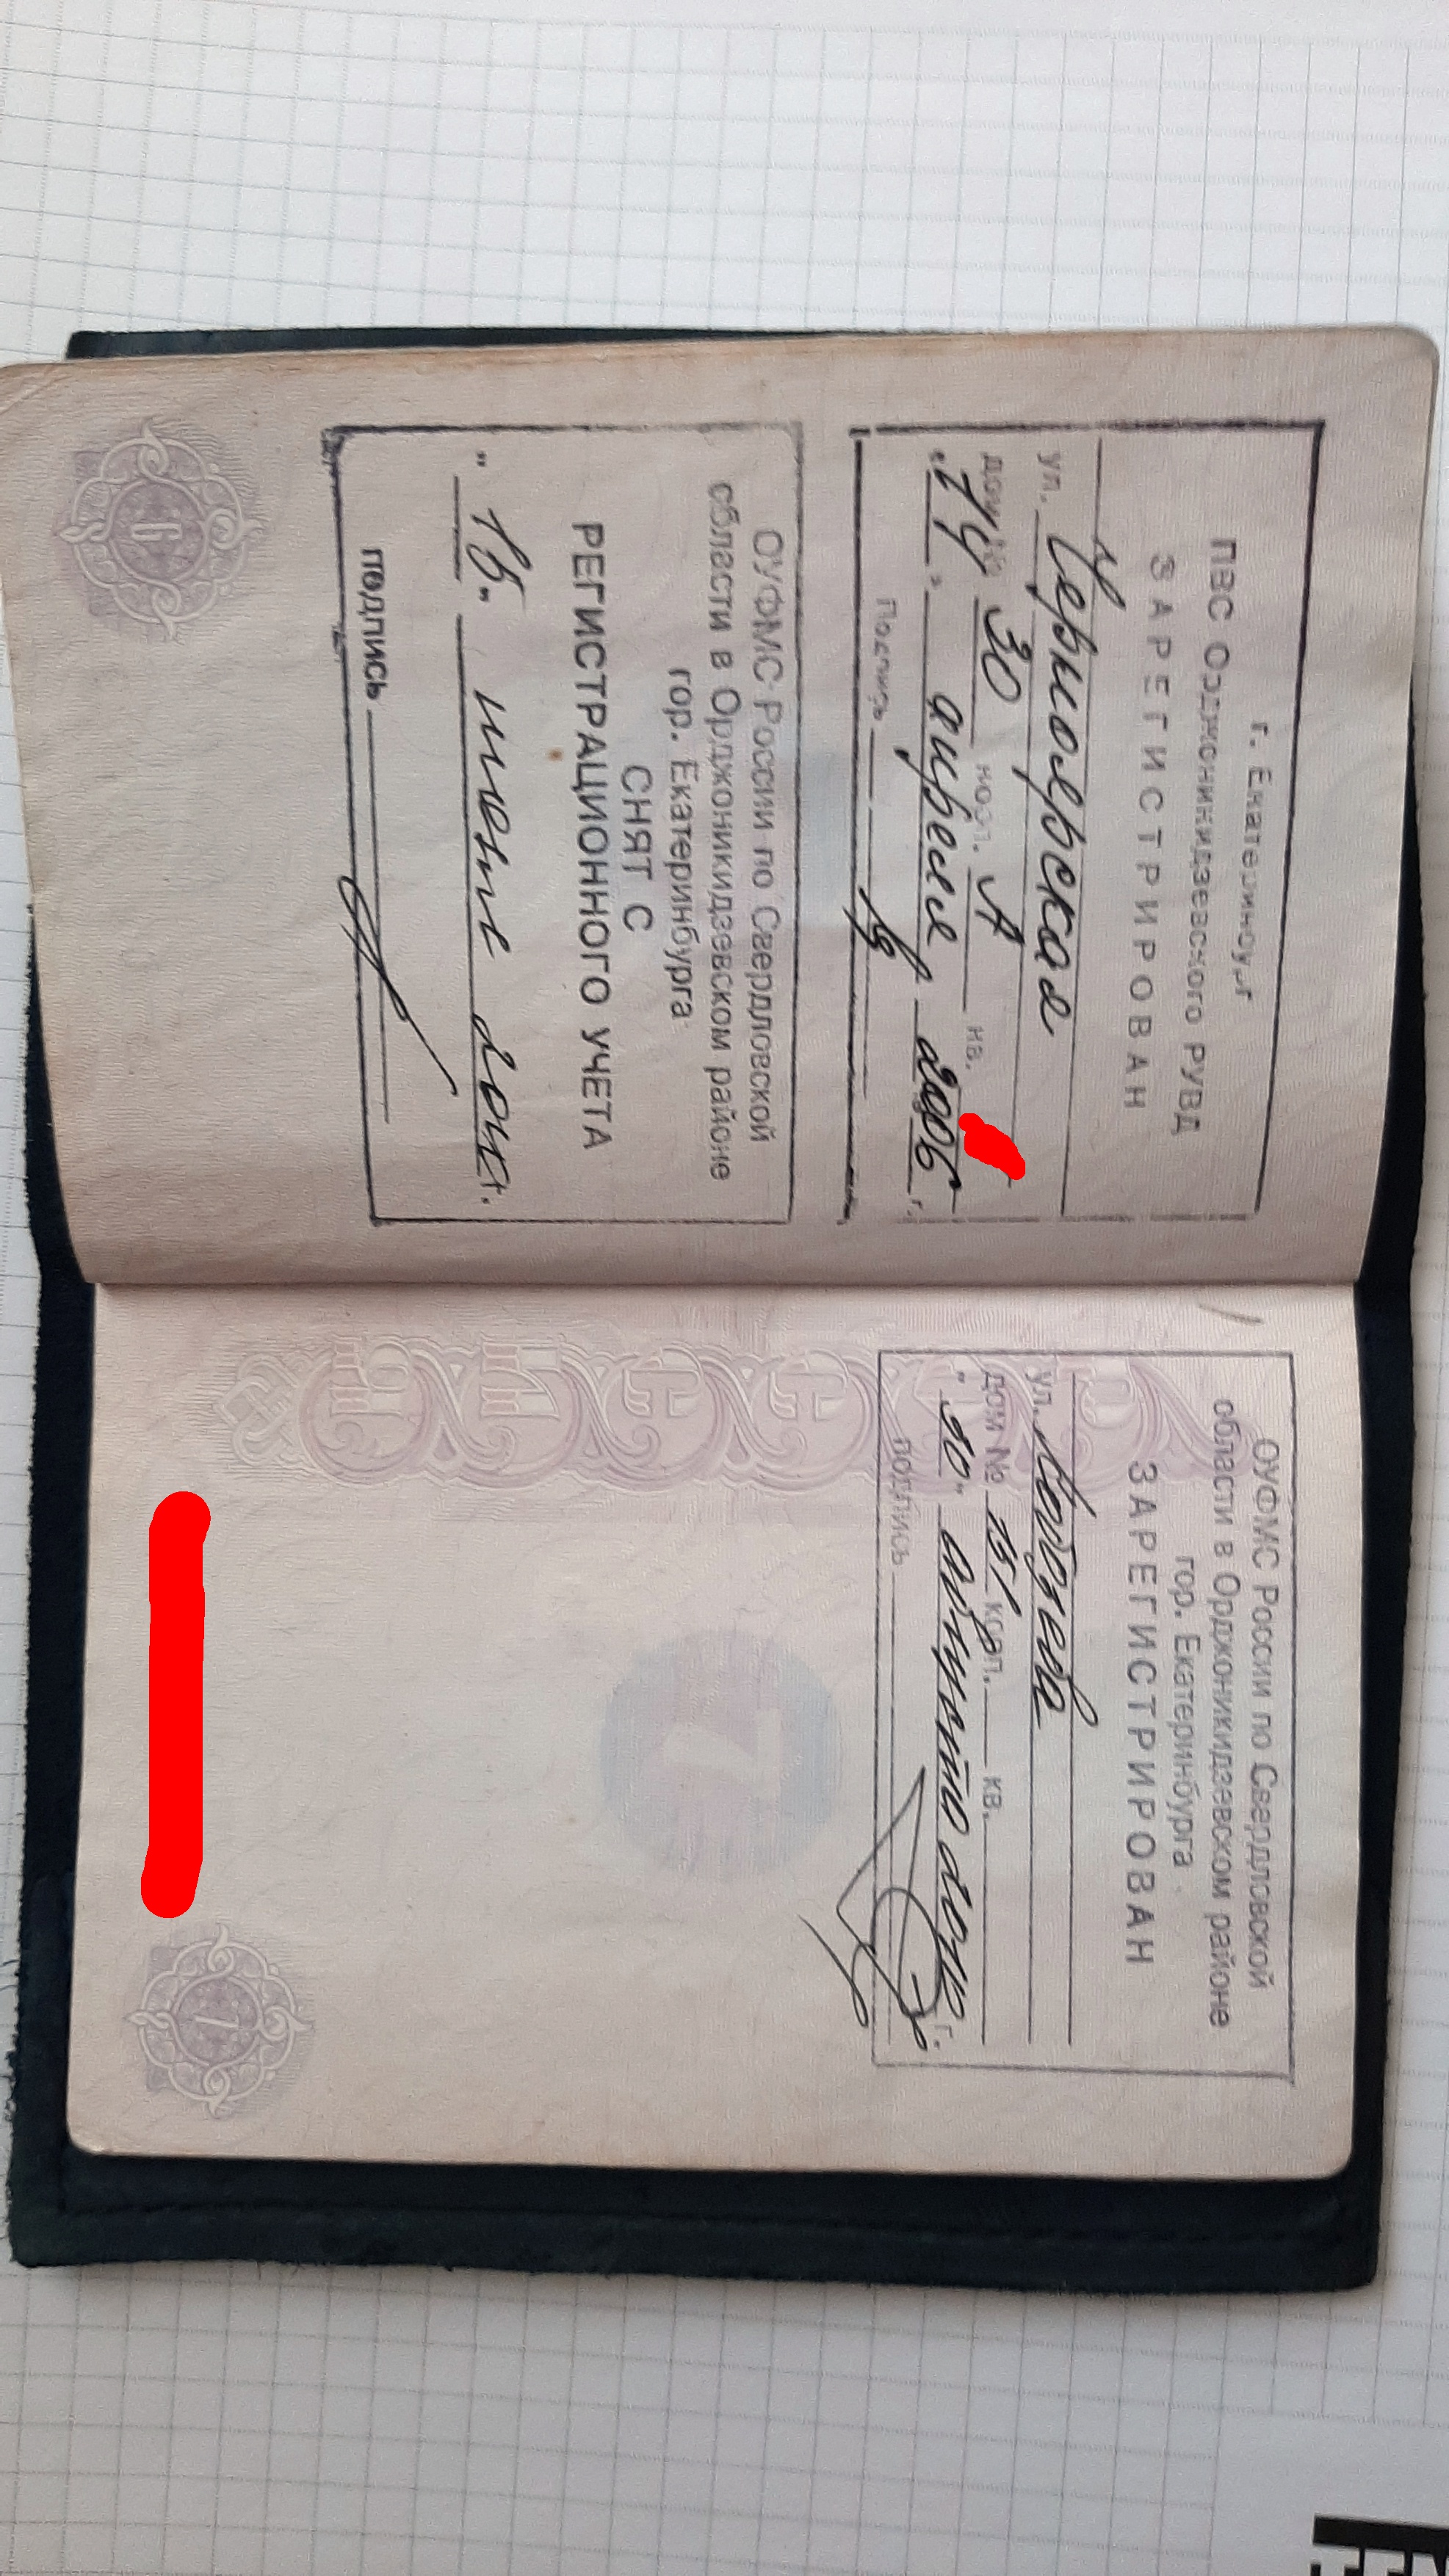 г. Екатеринбург
ПВС Орджоникидзевского РУВД
ЗАРЕГИСТРИРОВАН
ул. Черноярская
дом № 30 корп. А кв.
"14" апреля 2006 г.
Подпись
ОУФМС России по Свердловской
области в Орджоникидзевском районе
гор. Екатеринбурга
СНЯТ С
РЕГИСТРАЦИОННОГО УЧЕТА
" " июня г.
подпись
6
ОУФМС России по Свердловской
области в Орджоникидзевском районе
гор. Екатеринбурга
ЗАРЕГИСТРИРОВАН
ул.
дом № корп. кв.
" " августа г.
подпись
7
7